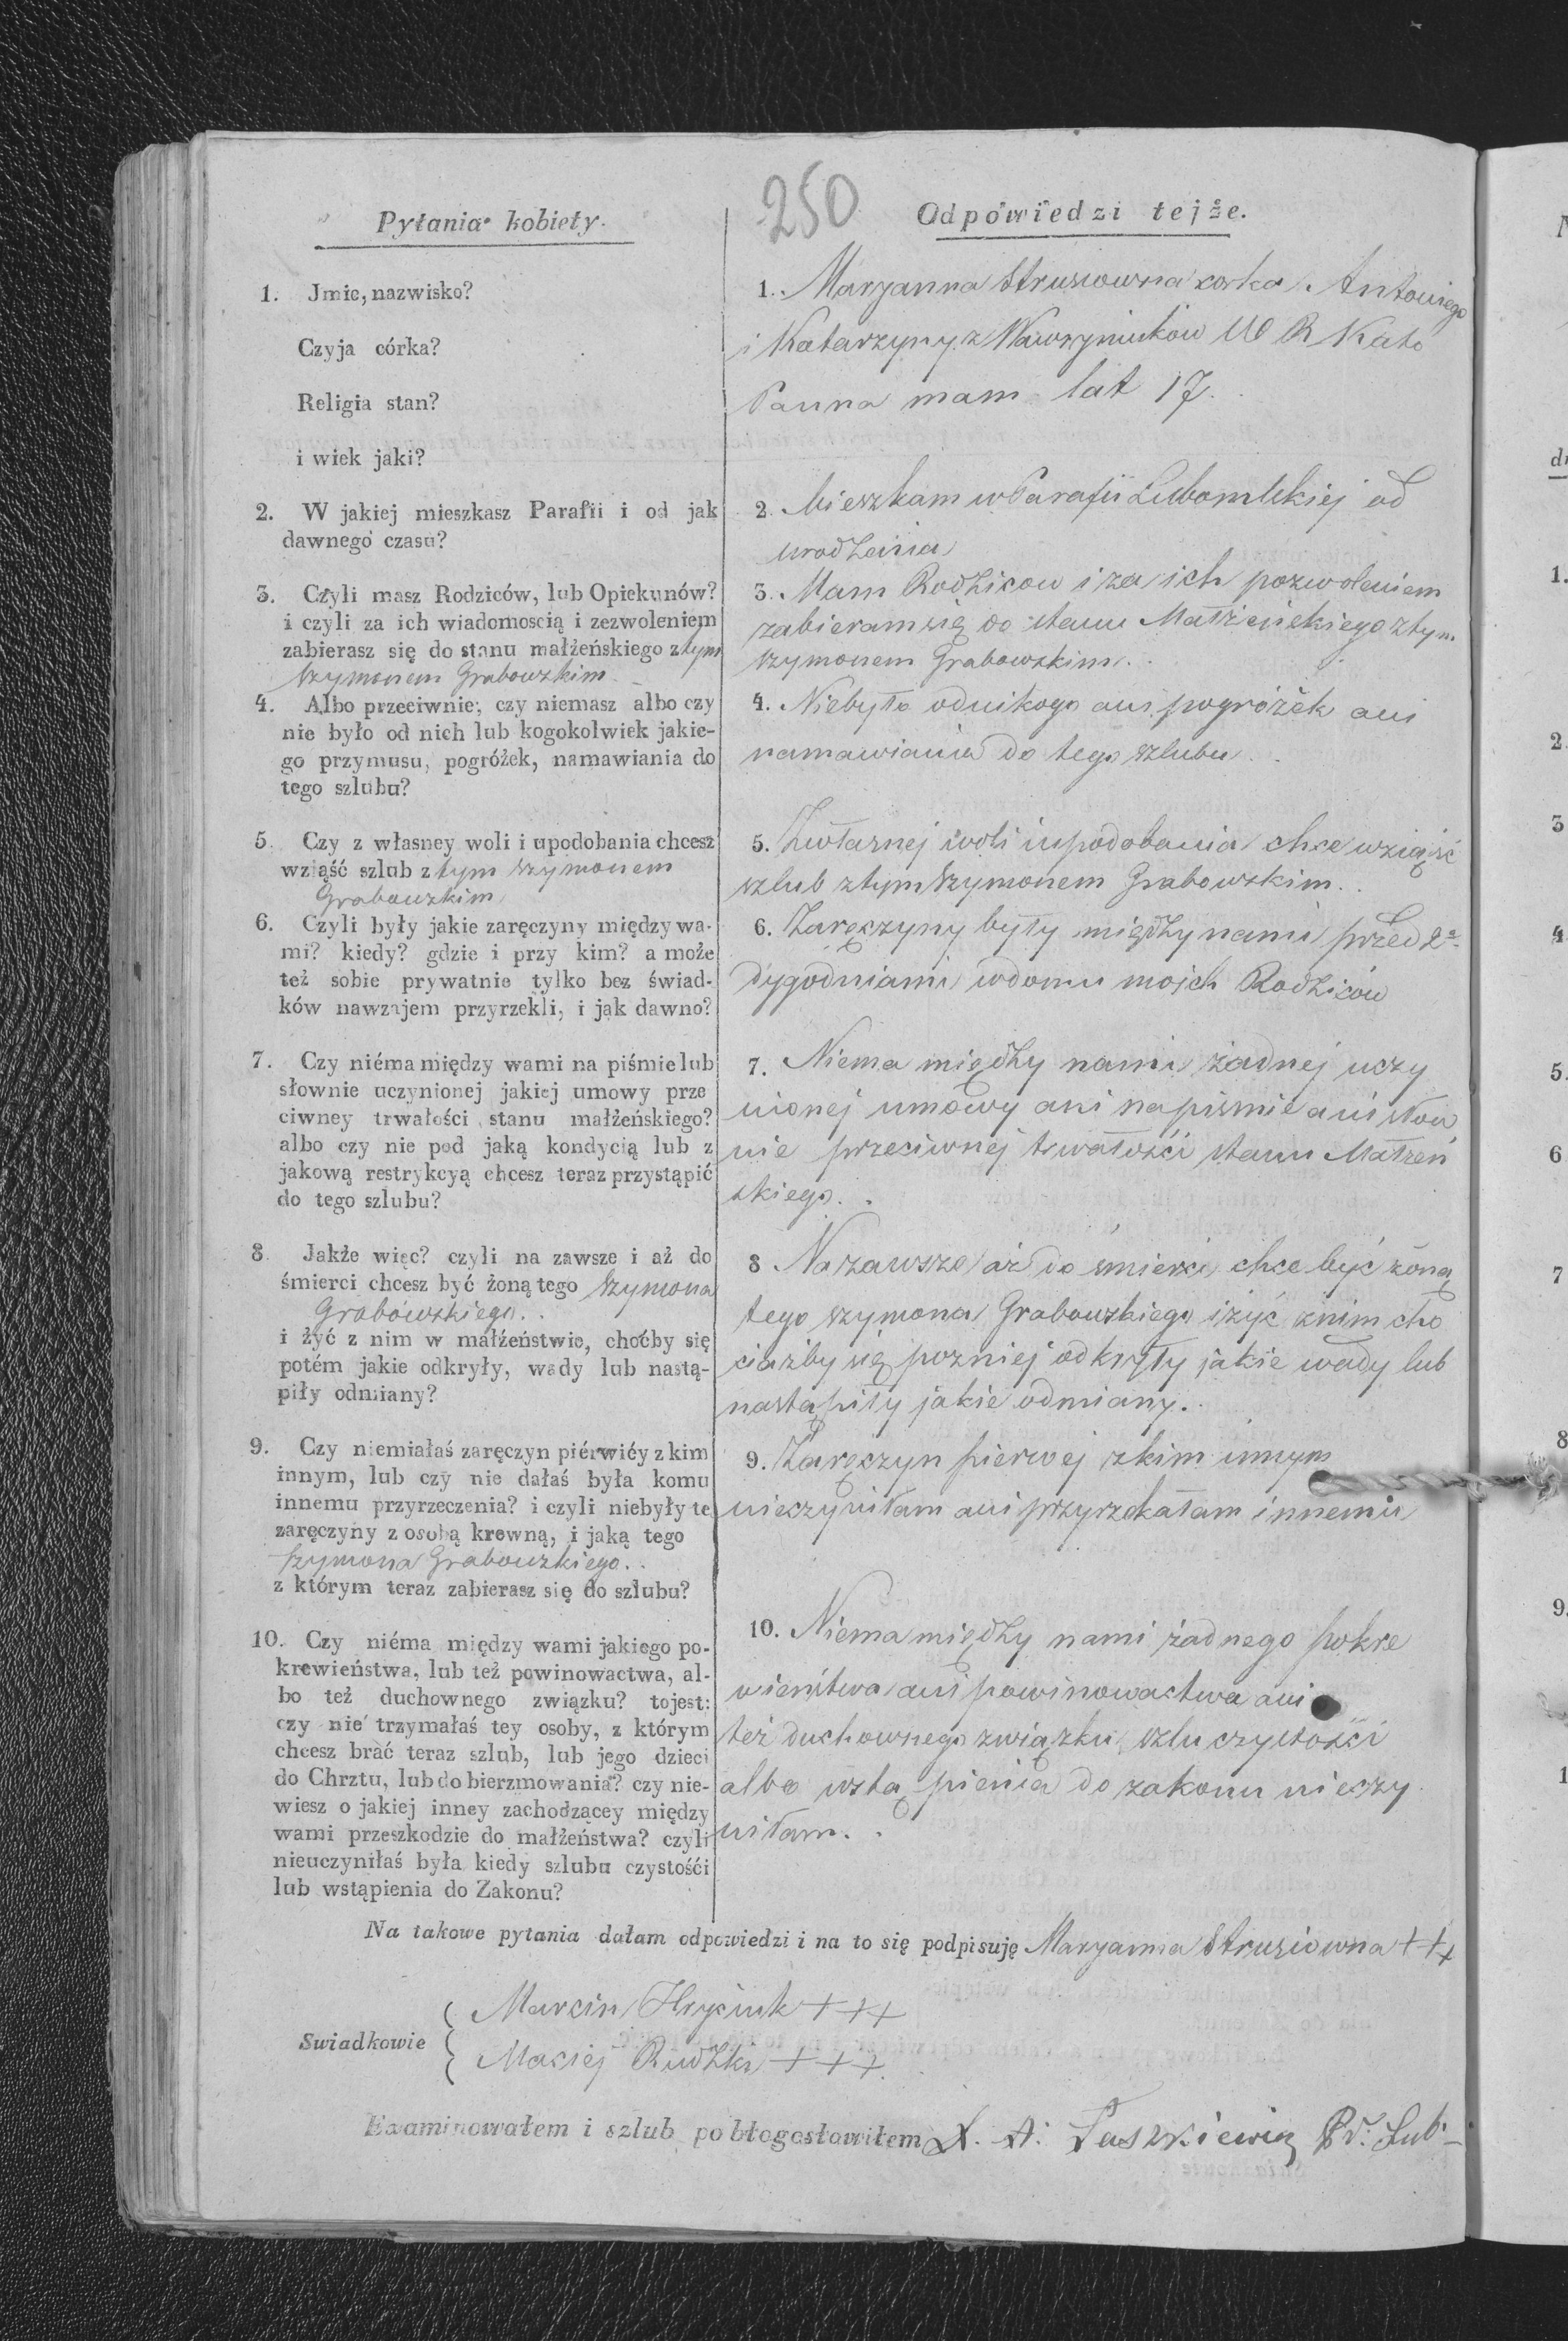 250
Pytania kobiety.
Odpowiedzi tejże.
1. Jmie, nazwisko?
Czyja córka?
Religia stan?
i wiek jaki?
1. Maryanna Strusiowna corka Antoniego
i Katarzyny z Wawryniukow W R Kato
Panna mam lat 17.
2. W jakiej mieszkasz Parafii i od jak
dawnego czasu?
2. Mieszkam w Parafii Lubomlskiej od
urodzenia
3. Czyli masz Rodziców, lub Opiekunów?
i czyli za ich wiadomoscią i zezwoleniem
zabierasz się do stanu małżeńskiego z tym
Szymonem Grabowskim
3. Mam Rodzicow i za ich pozwoleniem
zabieram się do stanu Małżeńskiego z tym
Szymonem Grabowskim.
4. Albo przeciwnie, czy niemasz albo czy
nie było od nich lub kogokolwiek jakie-
go przymusu, pogróżek, namawiania do
tego szlubu?
4. Niebyło odnikogo ani pogróżek ani
namawiania do tego szlubu.
5. Czy z własney woli i upodobania chcesz
wziąść szlub z tym Szymonem
Grabowskim
5. Zwłasnej woli iupodobania chce wziąść
szlub ztym Szymonem Grabowskim.
6. Czyli były jakie zaręczyny między wa-
mi? kiedy? gdzie i przy kim? a może
też sobie prywatnie tylko bez świad-
ków nawzajem przyrzekli, i jak dawno?
6. Zaręczyny były między nami przed 2a
dygodniami wdomu moich Rodziców
7. Czy niéma między wami na piśmie lub
słownie uczynionej jakiej umowy prze
ciwney trwałości stanu małżeńskiego?
albo czy nie pod jaką kondycią lub z
jakową restrykcyą chcesz teraz przystąpić
do tego szlubu?
7. Niema między nami żadnej uczy
nionej umowy ani napismie ani słow
nie przeciwnej trwałości stanu Małżeń
skiego.
8. Jakże więc? czyli na zawsze i aż do
śmierci chcesz być żoną tego Szymona
Grabowskiego.
i żyć z nim w małżeństwie, choćby się
potém jakie odkryły, wady lub nastą-
piły odmiany?
8 Nazawsze aż do śmierci chce być żoną
tego Szymona Grabowskiego iżyć znim cho
ciażby się pozniej odkryły jakie wady lub
nastąpiły jakie odmiany.
9. Czy niemiałaś zaręczyn piérwiéy z kim
innym, lub czy nie dałaś była komu
innemu przyrzeczenia? i czyli niebyły te
zaręczyny z osobą krewną, i jaką tego
Szymona Grabowskiego.
z którym teraz zabierasz się do szlubu?
9. Zaręczyn pierwej zkim innym
nieczyniłam ani przyrzekałam innemu
10. Czy niéma między wami jakiego po-
krewieństwa, lub też powinowactwa, al-
bo też duchownego związku? tojest:
czy nie trzymałaś tey osoby, z którym
chcesz brać teraz szlub, lub jego dzieci
do Chrztu, lub do bierzmowania? czy nie-
wiesz o jakiej inney zachodzącey między
wami przeszkodzie do małżeństwa? czyli
nieuczyniłaś była kiedy szlubu czystośći
lub wstąpienia do Zakonu?
10. Niema między nami żadnego pokre
wieństwa ani powinowactwa ani
też duchownego związku szlu czystości
albo wstąpienia do zakonu nieczy
niłam.
Na takowe pytania dałam odpowiedzi i na to się podpisuję Maryanna Strusiowna +++
Swiadkowie
Marcin Hryciuk +++
Maciej Rudzki +++
Examinowałem i szlub pobłogosławiłem X. A. Paszkiewicz Pr. Lub.